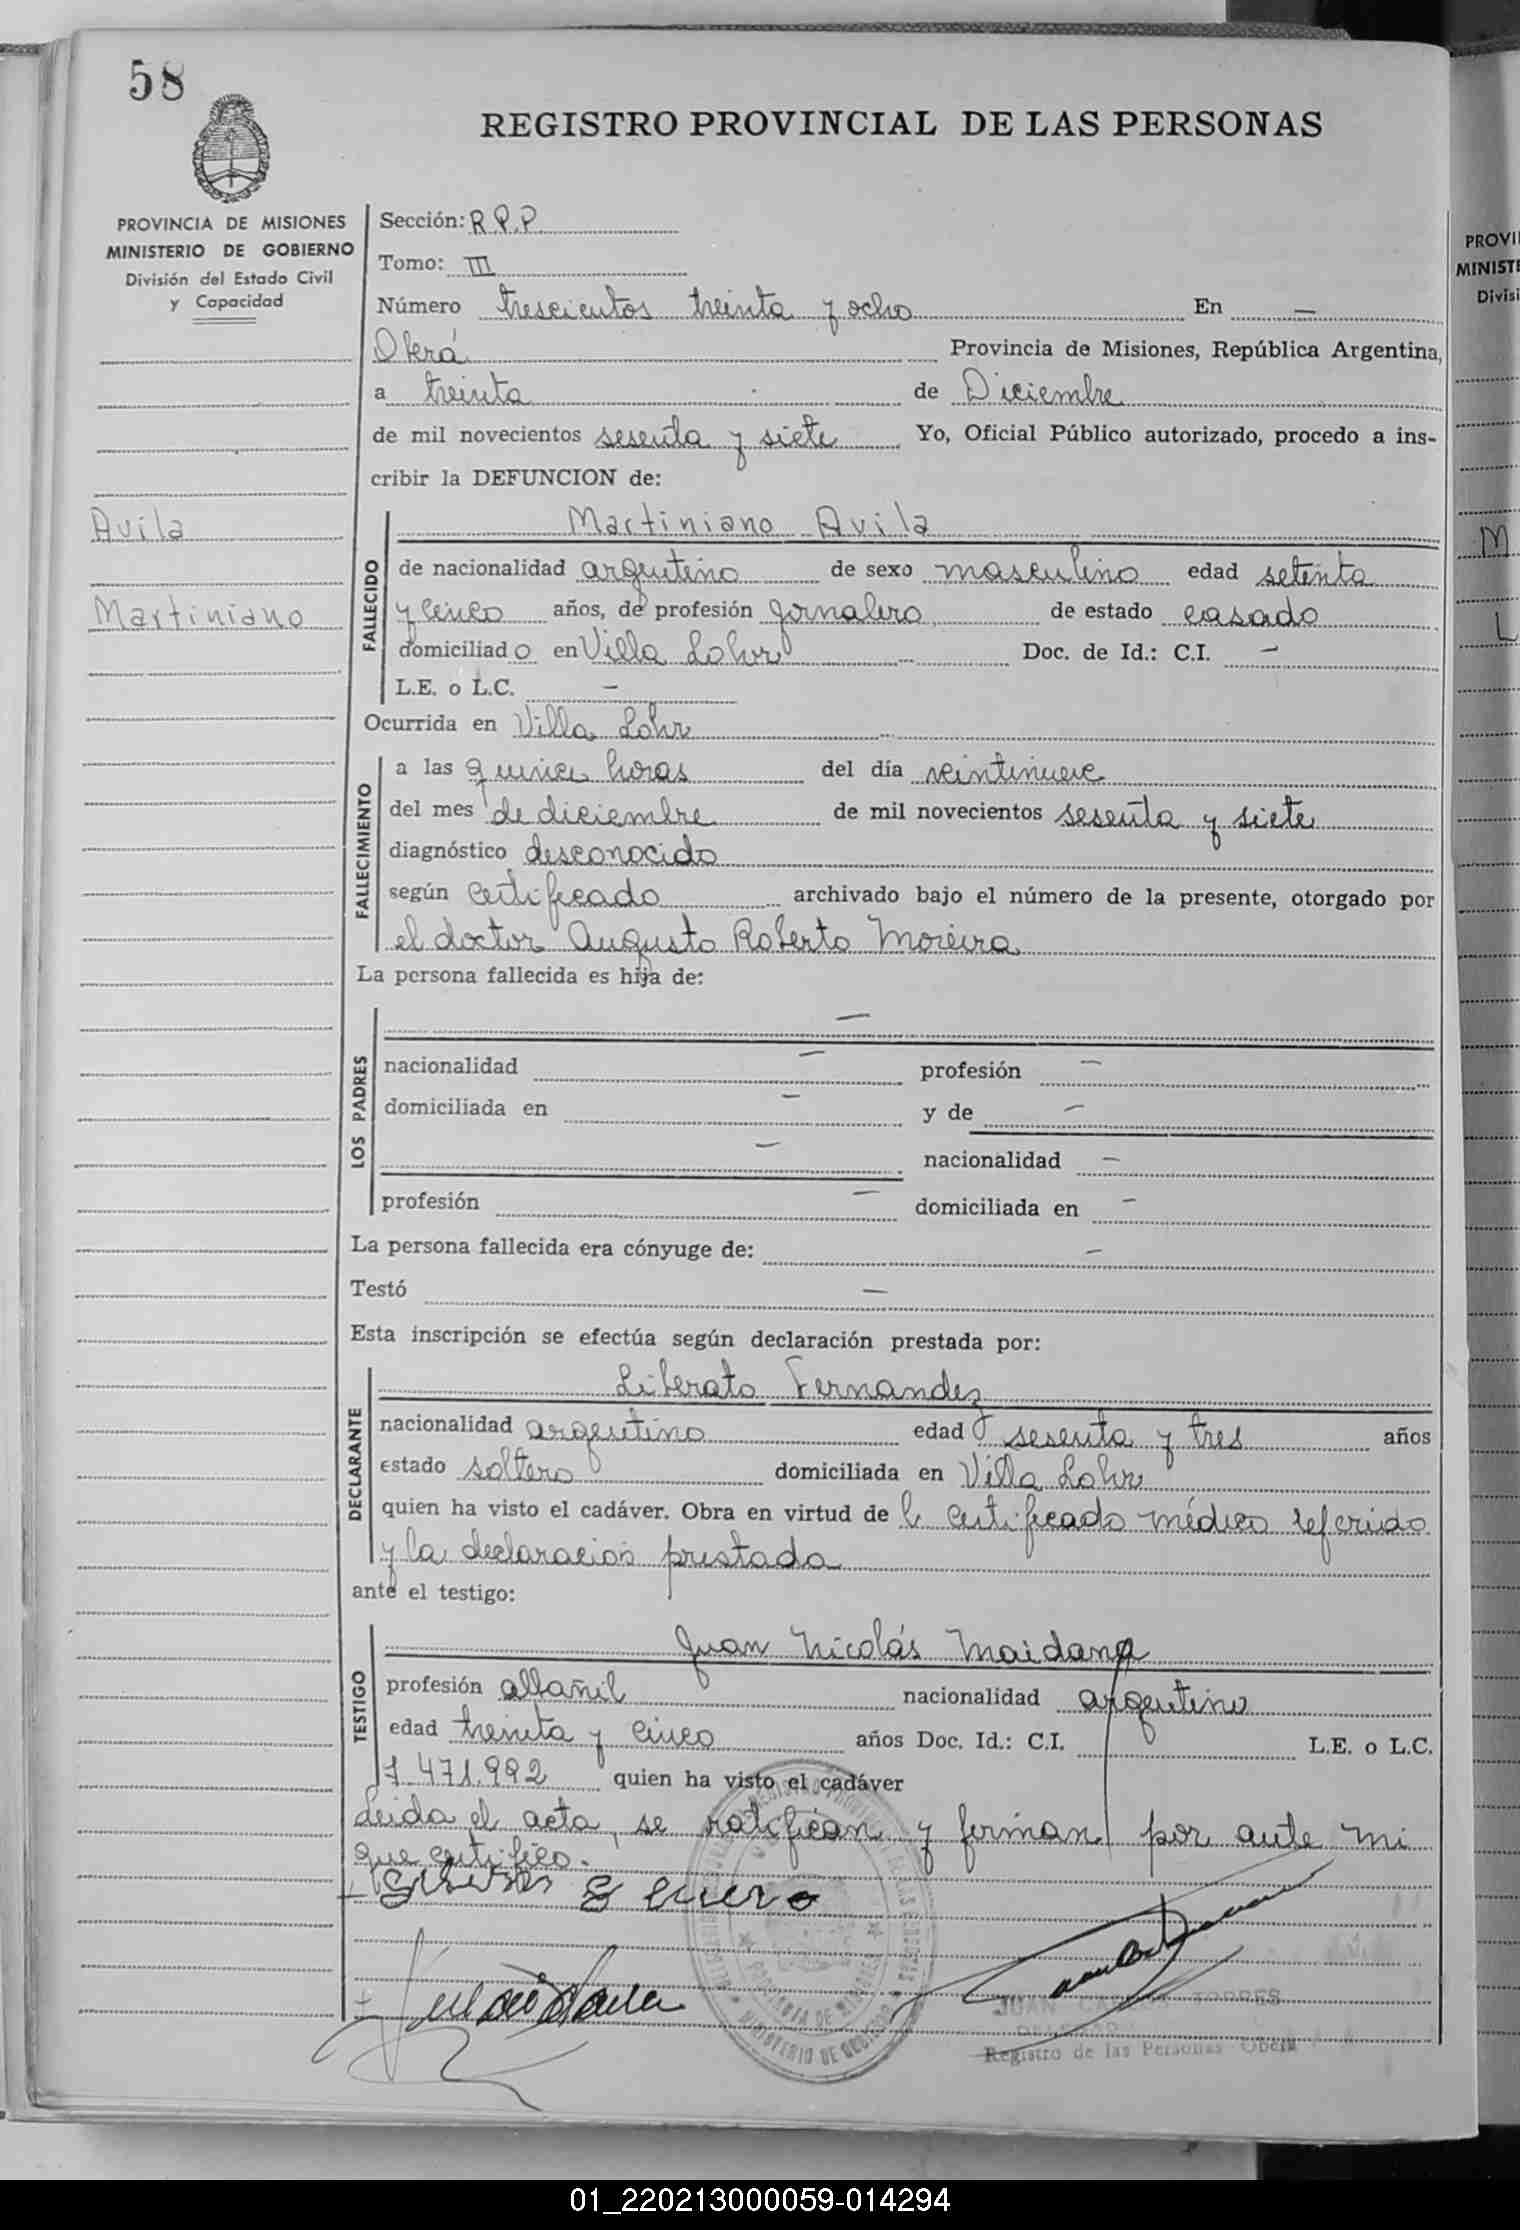 58
REGISTRO PROVINCIAL DE LAS PERSONAS
PROVINCIA DE MISIONES
MINISTERIO DE GOBIERNO
División del Estado Civil
y Capacidad
Avila
Martiniano
Sección: R.P.P.
Tomo: III
Número trescientos treinta y ocho En —
Oberá Provincia de Misiones, República Argentina,
a treinta de Diciembre
de mil novecientos sesenta y siete Yo, Oficial Público autorizado, procedo a ins-
cribir la DEFUNCION de:
FALLECIDO
Martiniano Avila
de nacionalidad argentino de sexo masculino edad setenta
y cinco años, de profesión jornalero de estado casado
domiciliado en Villa Lohr Doc. de Id.: C.I. —
L.E. o L.C. —
Ocurrida en Villa Lohr
FALLECIMIENTO
a las quince horas del día veintinueve
del mes de diciembre de mil novecientos sesenta y siete
diagnóstico desconocido
según certificado archivado bajo el número de la presente, otorgado por
el doctor Augusto Roberto Moreira
La persona fallecida es hija de:
LOS PADRES
—
nacionalidad — profesión —
domiciliada en — y de —
— nacionalidad —
profesión — domiciliada en —
La persona fallecida era cónyuge de: —
Testó —
Esta inscripción se efectúa según declaración prestada por:
DECLARANTE
Liberato Fernandez
nacionalidad argentino edad sesenta y tres años
estado soltero domiciliada en Villa Lohr
quien ha visto el cadáver. Obra en virtud de certificado médico referido
y la declaración prestada
ante el testigo:
TESTIGO
Juan Nicolás Maidana
profesión albañil nacionalidad argentino
edad treinta y cinco años Doc. Id.: C.I. L.E. o L.C.
7.471.992 quien ha visto el cadáver
Leida el acta, se ratifican y firman por ante mi
que certifico.
JUAN CARLOS TORRES
Registro de las Personas Oberá
PROVINCIA DE MISIONES
MINISTERIO DE GOBIERNO
PROVI
MINISTE
Divisi
M
L
01_220213000059-014294